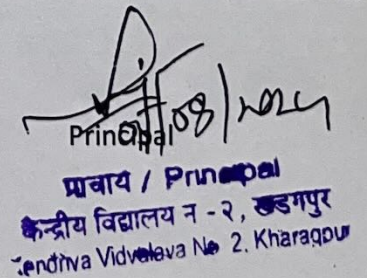 Principal
08/2024
प्राचार्य / Principal
केन्द्रीय विद्यालय न - २, खड़गपुर
Kendriya Vidyalaya No 2. Kharagpur